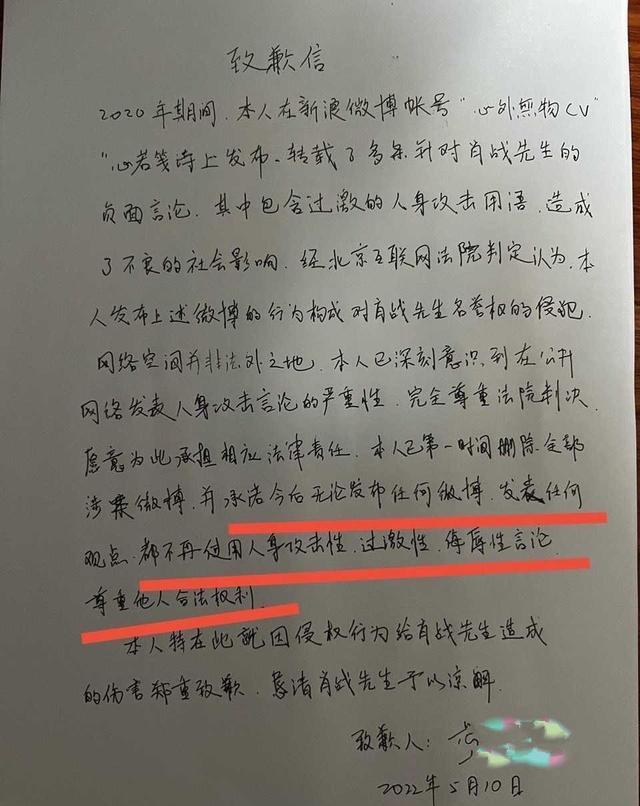 致歉信
2020年期间,本人在新浪微博帐号"心外無物CV"
"心若笺诗上发布、转载了多条针对肖战先生的
负面言论,其中包含过激的人身攻击用语,造成
了不良的社会影响,经北京互联网法院判定认为,本
人发布上述微博的行为构成对肖战先生名誉权的侵犯.
网络空间并非法外之地,本人已深刻意识到在公开
网络发表人身攻击言论的严重性,完全尊重法院判决,
愿意为此承担相应法律责任.本人已第一时间删除全部
涉案微博,并承诺今后无论发布任何微博、发表任何
观点,都不再使用人身攻击性、过激性、侮辱性言论,
尊重他人合法权利.
本人特在此就因侵权行为给肖战先生造成
的伤害郑重致歉,恳请肖战先生予以谅解.
致歉人:
2022年5月10日